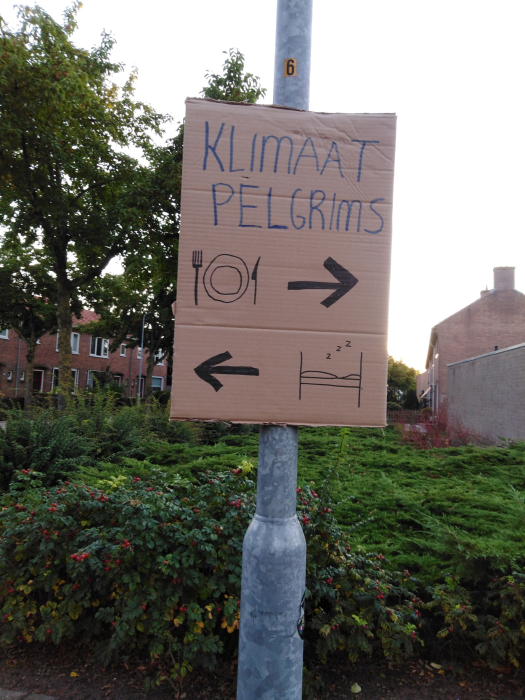 6
KLIMAAT
PELGRIMS
z z z